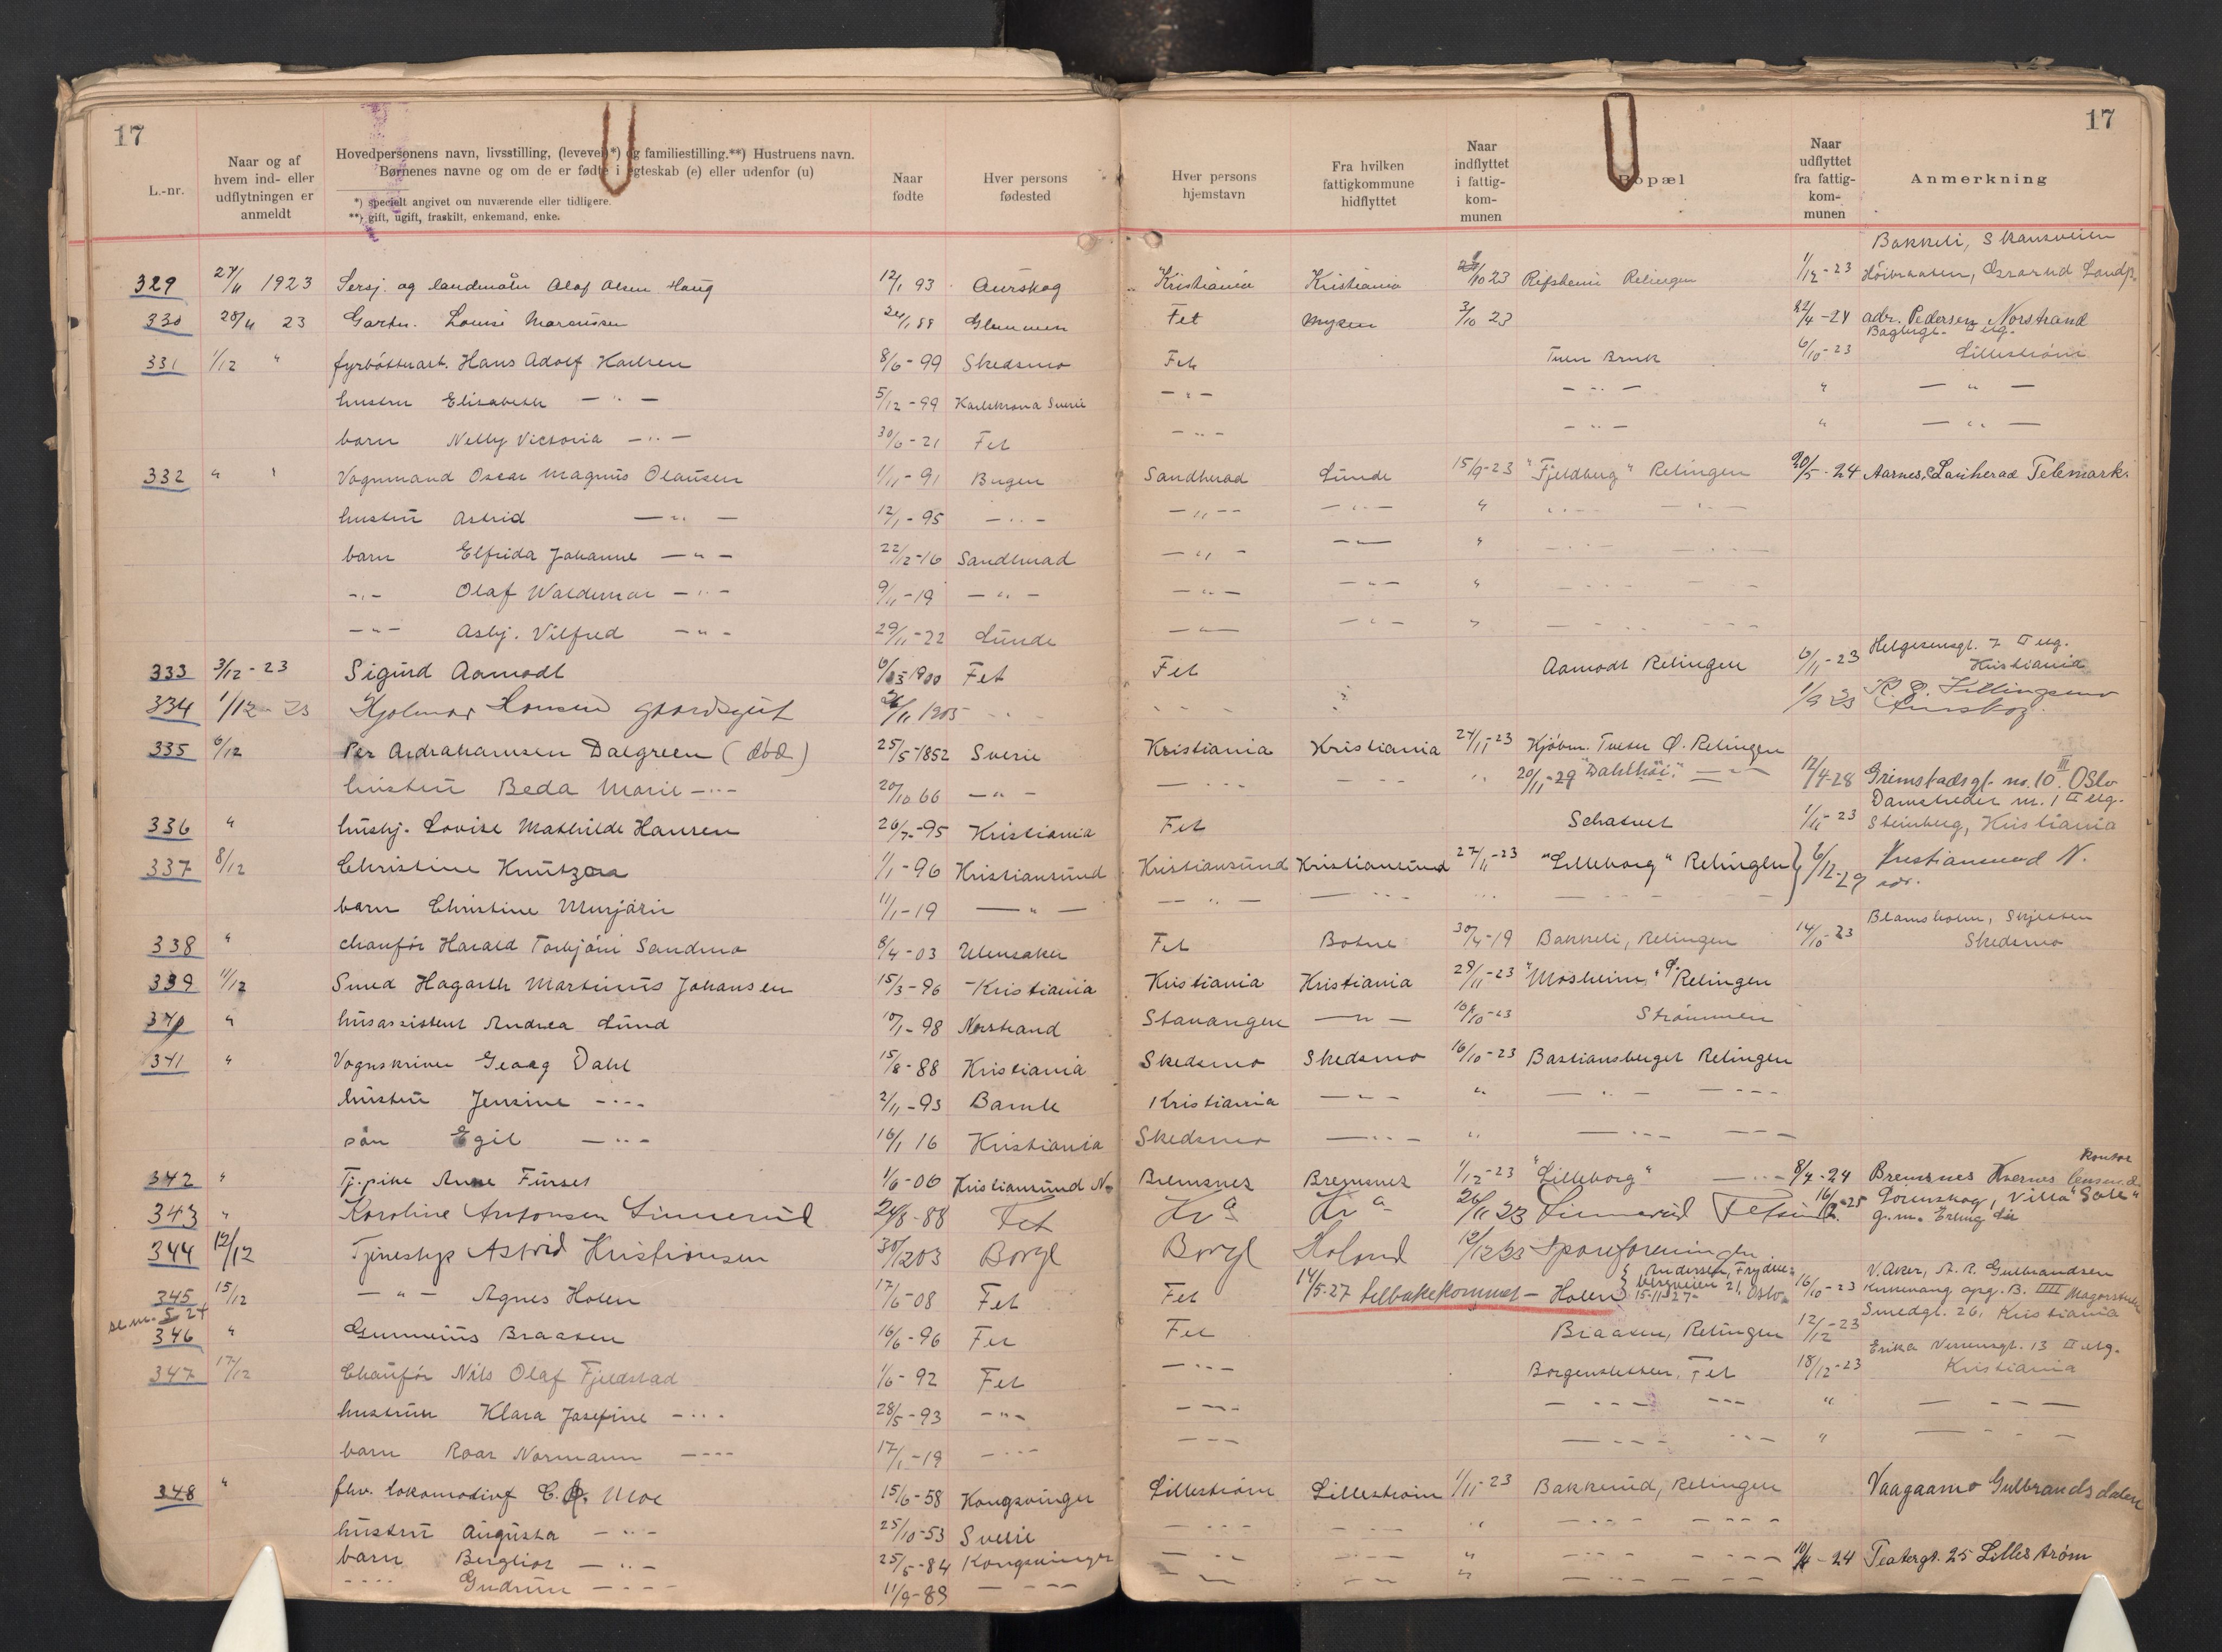 17
17
L.-nr.
Naar og af hvem ind- eller udflytningen er anmeldt
Hovedpersonens navn, livsstilling, (levevei*) og familiestilling.**) Hustruens navn.
Børnenes navne og om de er fødte i egteskab (e) eller udenfor (u)
*) specielt angivet om nuværende eller tidligere.
**) gift, ugift, fraskilt, enkemand, enke.
Naar fødte
Hver persons fødested
Hver persons hjemstavn
Fra hvilken fattigkommune hidflyttet
Naar indflyttet i fattig-kom-munen
Bopæl
Naar udflyttet fra fattig-kom-munen
Anmerkning
Bakkeli, Skansveien
329 27/11 1923 Sersj. og landmåln Olaf Olsen Haug 12/1 93 Aurskog Kristiania Kristiania 10 23 Rifsheim Relingen 1/12-23 Høibraaten,
330 28/11 23 Gartn. Louise Marcussen 24/1 88 Glemmen Fet Mysen 3/10 23 22/4-24 adr. Pedersen Norstrand
331 1/12 " fyrbøtterast. Hans Adolf Karlsen 8/6-99 Skedsmo Fet Tuen Bruk 6/10-23 Lillestrøm
hustru Elisabeth — " — 5/12-99 Karlskrona Sverie — " — — " — " — " —
barn Nelly Victoria — " — 30/6-21 Fet — " — — " — " — " —
332 " " Vognmand Oscar Magnus Olausen 1/11-91 Bugen Sandherad Lunde 15/9-23 "Fjeldberg" Relingen 20/5-24 Aarnes, Telemark.
hustru Astrid — " — 12/1-95 — " — — " — — " — "
barn Elfrida Johanne — " — 22/12-16 Sandherad — " — — " — "
— " — Olaf Waldemar — " — 9/11-19 — " — — " — — " — "
— " — Asbj. Vilfred — " — 29/11-22 Lunde — " — — " — "
Helgesensgt. 7 II etg.
333 3/12-23 Sigurd Aamodt 1900 Fet Fet Aamodt Relingen 6/11-23 Kristiania
334 1/12-23 Hjalmar Hansen gaardsgut 1905 1/9 23 Aurskog.
335 6/12 Per Abrahamsen Dalgreen (død) 25/5-1852 Sverie Kristiania Kristiania 24/11-23 Kjøbm. Tveter Ø. Relingen
hustru Beda Marie — " — 20/10 66 — " — " 20/11-29 "Dahlhøi" — " — 12/4-28 Grimstadsgt. no. 10 III Oslo
Damstredet nr. 1 II etg.
336 " husbj. Lovise Mathilde Hansen 26/7-95 Kristiania Fet 1/11-23 Steinberg, Kristiania
337 8/12 Christine Knutzen 1/1-96 Kristiansund Kristiansund Kristiansund 27/11-23 "Lilleborg" Relingen 6/12-29 Kristiansund N. adr.
barn Christine 11/1-19 — " —
338 " chaufør Harald Torbjørn Sandmo 8/4-03 Ullensaker Fet Botne 30/4-19 Bakkeli, Relingen 14/10-23 Skjetten Skedsmo
339 11/12 Smed Hagarth Martinius Johansen 15/3-96 Kristiania Kristiania Kristiania 29/11-23 "Mosheim" Ø. Relingen
340 " husassistent Andrea Lund 10/1-98 Norstrand Stavanger — " — 10/10-23 Strømmen
341 " Vognskriver Georg Dahl 15/8-88 Kristiania Skedsmo Skedsmo 16/10-23 Bastiansberget Relingen
hustru Jensine — " — 2/11-93 Bamle Kristiania — " — "
søn Egil — " — 16/1 16 Kristiania Skedsmo — " — "
kontor
342 " Tj.pike Anne Furset 1/6-06 Kristiansund N. Bremsnes Bremsnes 1/12-23 "Lilleborg" — " — 8/4-24 Bremsnes Kvernes
343 " Karoline Antonsen Linnerud 24/8-88 Fet Kra Kra 26/11 23 Linnerud Fetsund 16/2-25 Lørenskog, Villa "Solli" g.m. Erling Lie
344 12/12 Tjenestep Astrid Kristiansen 30/12 03 Borge Borge Høland 12/12 23 Spareforeningen
345 15/12 — " — Agnes Holen 17/6-08 Fet Fet 14/5-27 tilbakekommet — Holen Andersen, 21, Oslo 15-11-27 16/10-23 V. Aker, A. R. Gulbrandsen
se nr. 5 24
346 " Gunnerius Braaten 16/6-96 Fet Fet Braaten, Relingen 12/12-23 Smedgt. 26, Kristiania
347 17/12 Chaufør Nils Olaf Fjeldstad 1/6-92 Fet — " — Borgensletten, Fet 18/12-23 13 II etg. Kristiania
hustru Klara Josefine — " — 28/5-93 — " — — " — "
barn Roar Normann — " — 17/1-19 — " — — " — "
348 " fhv. lokomotivf C. Moe 15/6-58 Kongsvinger Lillestrøm Lillestrøm 1/11-23 Bakkerud, Relingen Vaagaamo Gulbrandsdalen
hustru Augusta — " — 25/10-53 Sverie — " — — " — "
barn Bergliot — " — 25/5-84 Kongsvinger — " — — " — " 10/4-24 Teatergt. 25 Lillestrøm
— " — Gudrun — " — 11/9-89 — " — — " — — " — "